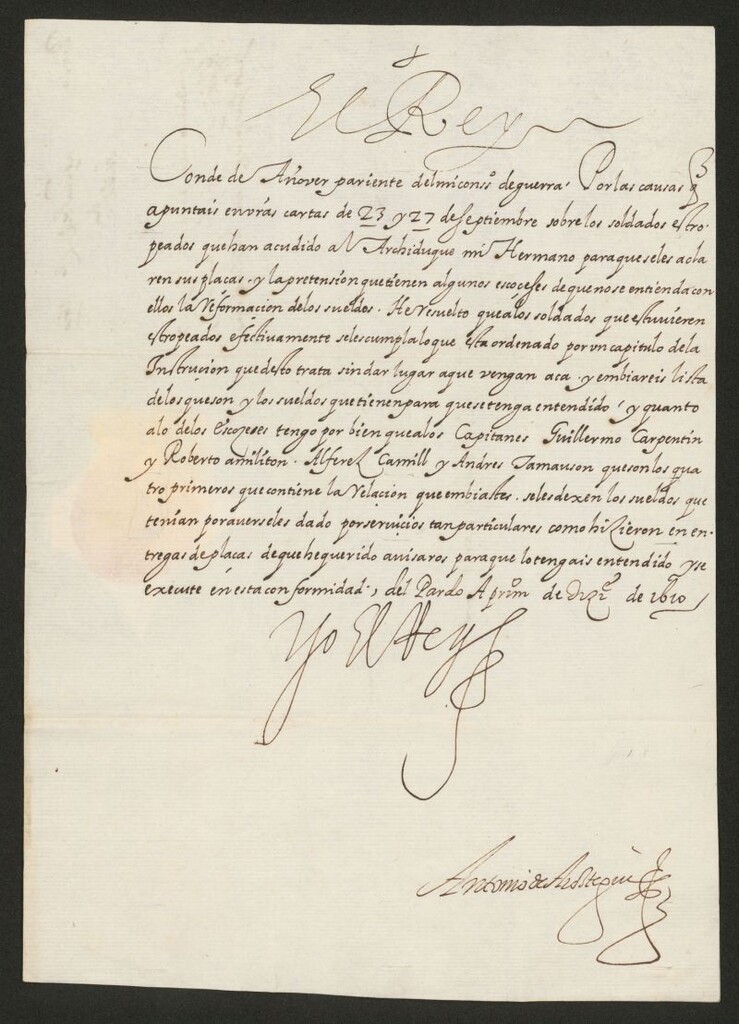 El Rey
Conde de Añover pariente del mi cons.º de guerra. Por las causas q
apuntais en vrãs cartas de 23 y 27 de septiembre sobre los soldados estro-
peados que han acudido al Archiduque mi Hermano para que se les acla
ren sus plaças. y la pretension que tienen algunos escoçeses de que no se entienda con
ellos la Reformacion de los sueldos. He resuelto que a los soldados que estuvieren
estropeados efectivamente se les cumpla lo que esta ordenado por un capitulo de la
Instrucion que desto trata sin dar lugar a que vengan aca. y embiareis lista
de los que son y los sueldos que tienen para que se tenga entendido, y quanto
a lo de los Escozeses tengo por bien que a los Capitanes Guillermo Carpentin
y Roberto amiliton. Alferez Camill y Andres Tamauson que son los qua
tro primeros que contiene la Relacion que embiastes. se les dexen los sueldos que
tenian por averseles dado por servicios tan particulares como hizieron en en-
tregas de plaças de que he querido avisaros para que lo tengais entendido y se
execute en esta conformidad, del Pardo A prim.º de Diz.e de 1610
Yo El Rey
Antonio de Arostegui